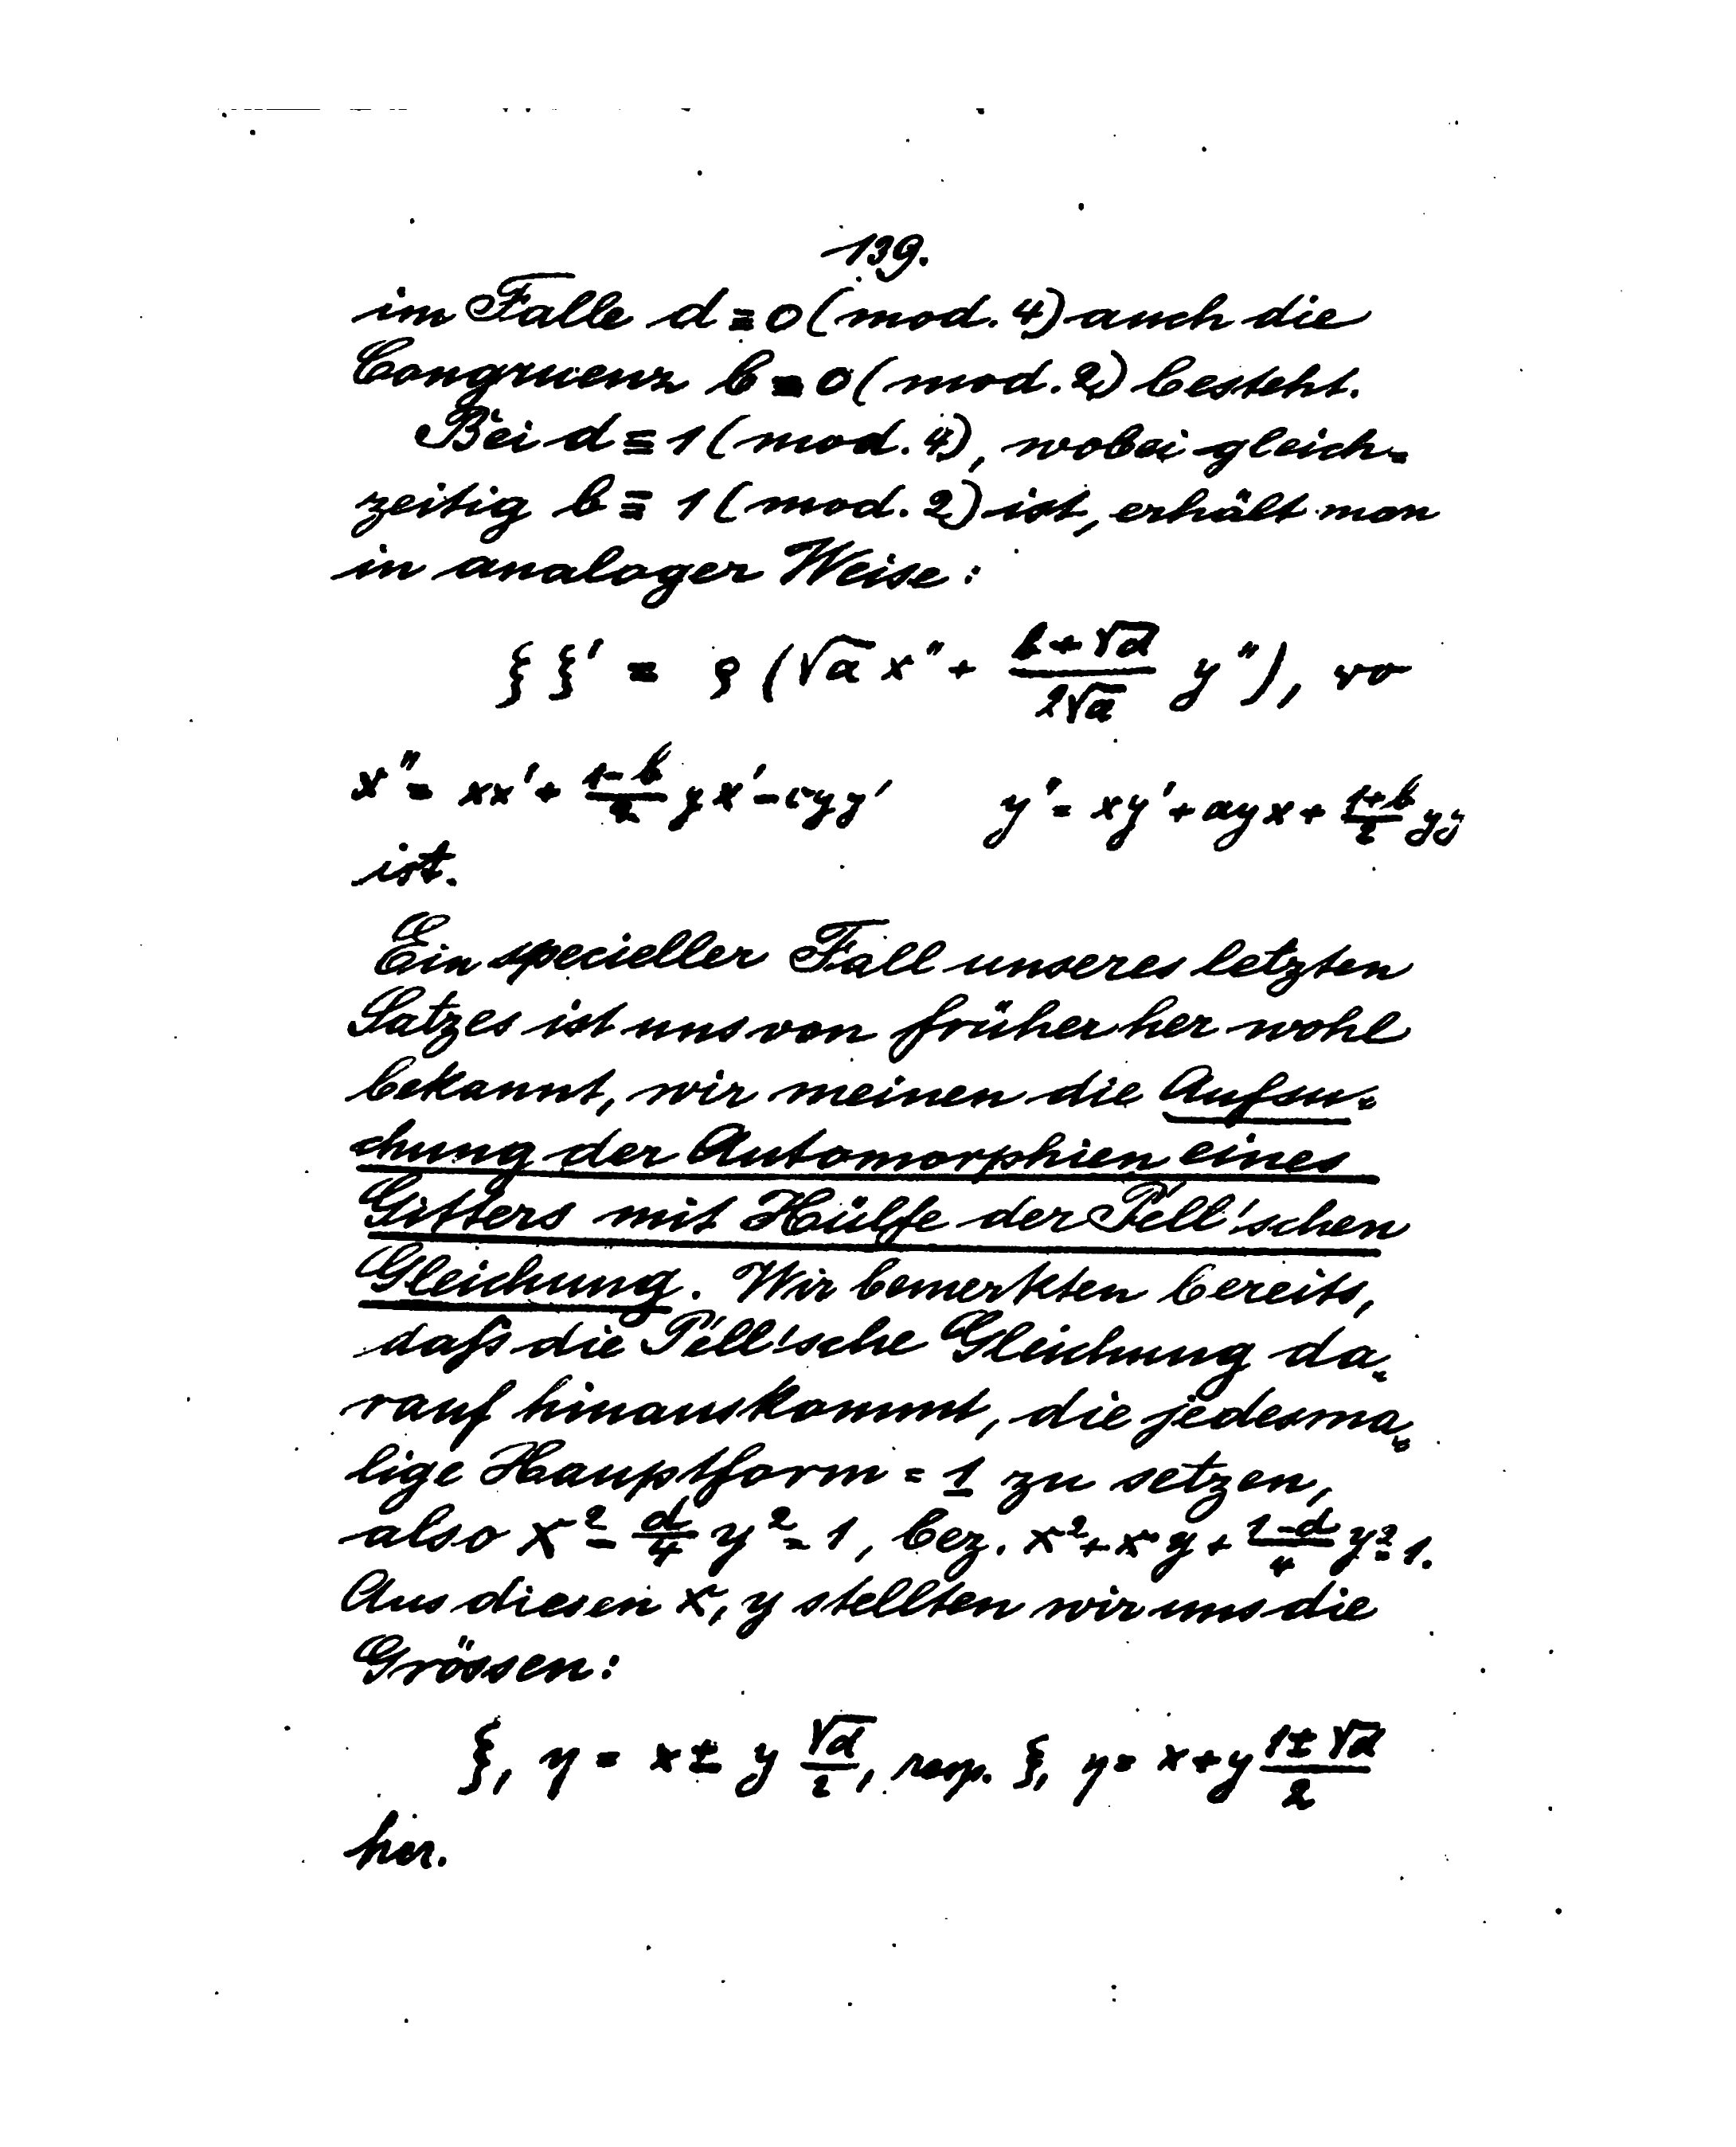 139.
im Falle d ≡ 0 (mod. 4) auch die
Congruenz b ≡ 0 (mod. 2) besteht.
Bei d ≡ 1 (mod. 4), wobei gleich-
zeitig b ≡ 1 (mod. 2) ist, erhält man
in analoger Weise:
ξ ξ' = ρ (√a x" + \frac{b+√d}{2√a} y"), wo
x" = xx' + \frac{1-b}{2} yx' - cyy' y' = xy' + ayx + \frac{1+b}{2} yy'
ist.
Ein specieller Fall unseres letzten
Satzes ist uns von früher her wohl
bekannt, wir meinen die Aufsu-
chung der Automorphien eines
Gitters mit Hülfe der Pell'schen
Gleichung. Wir bemerkten bereits,
daß die Pell'sche Gleichung da-
rauf hinauskommt, die jedesma-
lige Hauptform = 1 zu setzen,
also x² - \frac{d}{4} y² = 1, bez. x² + xy + \frac{1-d}{4} y² = 1.
Aus diesen x, y stellten wir uns die
Grössen:
ξ, η = x ± y \frac{√d}{2}, resp. ξ, η = x + y \frac{1±√d}{2}
her.